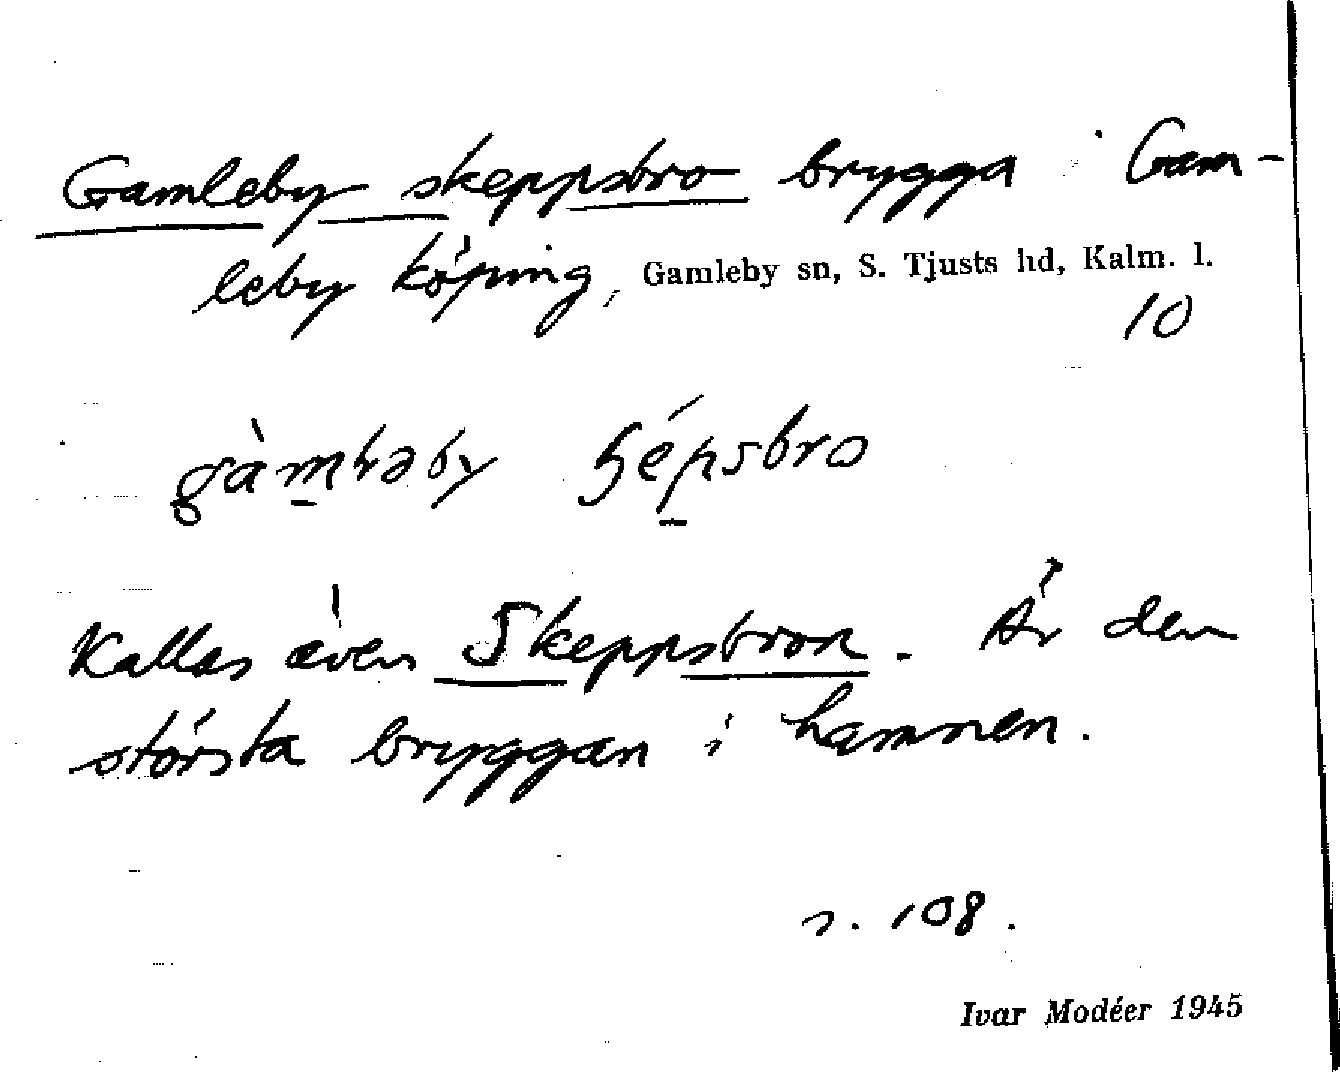 Gamleby skeppsbro brygga i Gam-
leby köping, Gamleby sn, S. Tjusts hd, Kalm. l.
10
Kallas även Skeppsbron. Är den
största bryggan i hamnen.
s. 108.
Ivar Modéer 1945